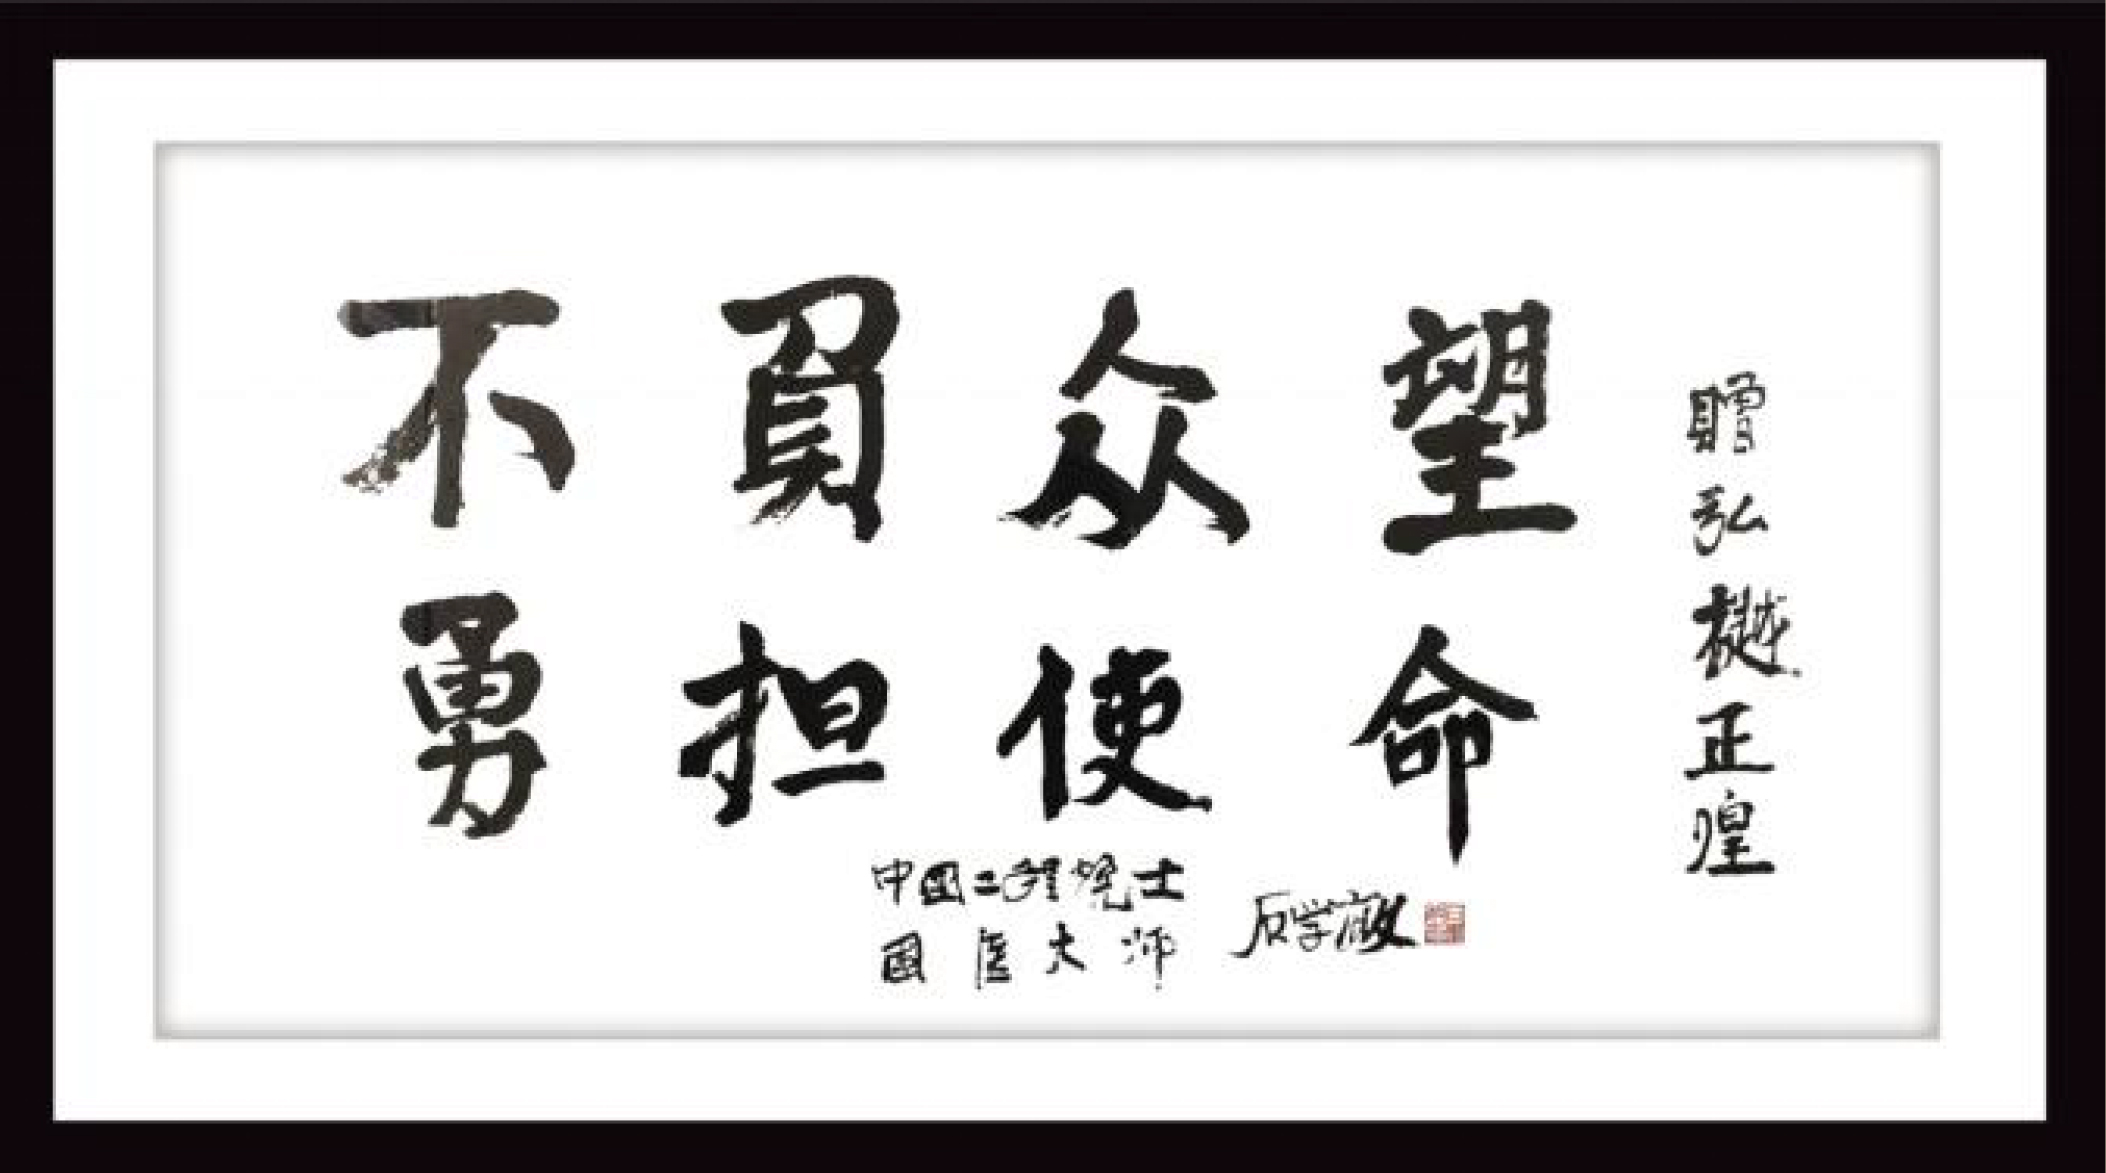 不負众望
勇担使命
贈弘樾正煌
中國工程院士
國医大师
石学敏